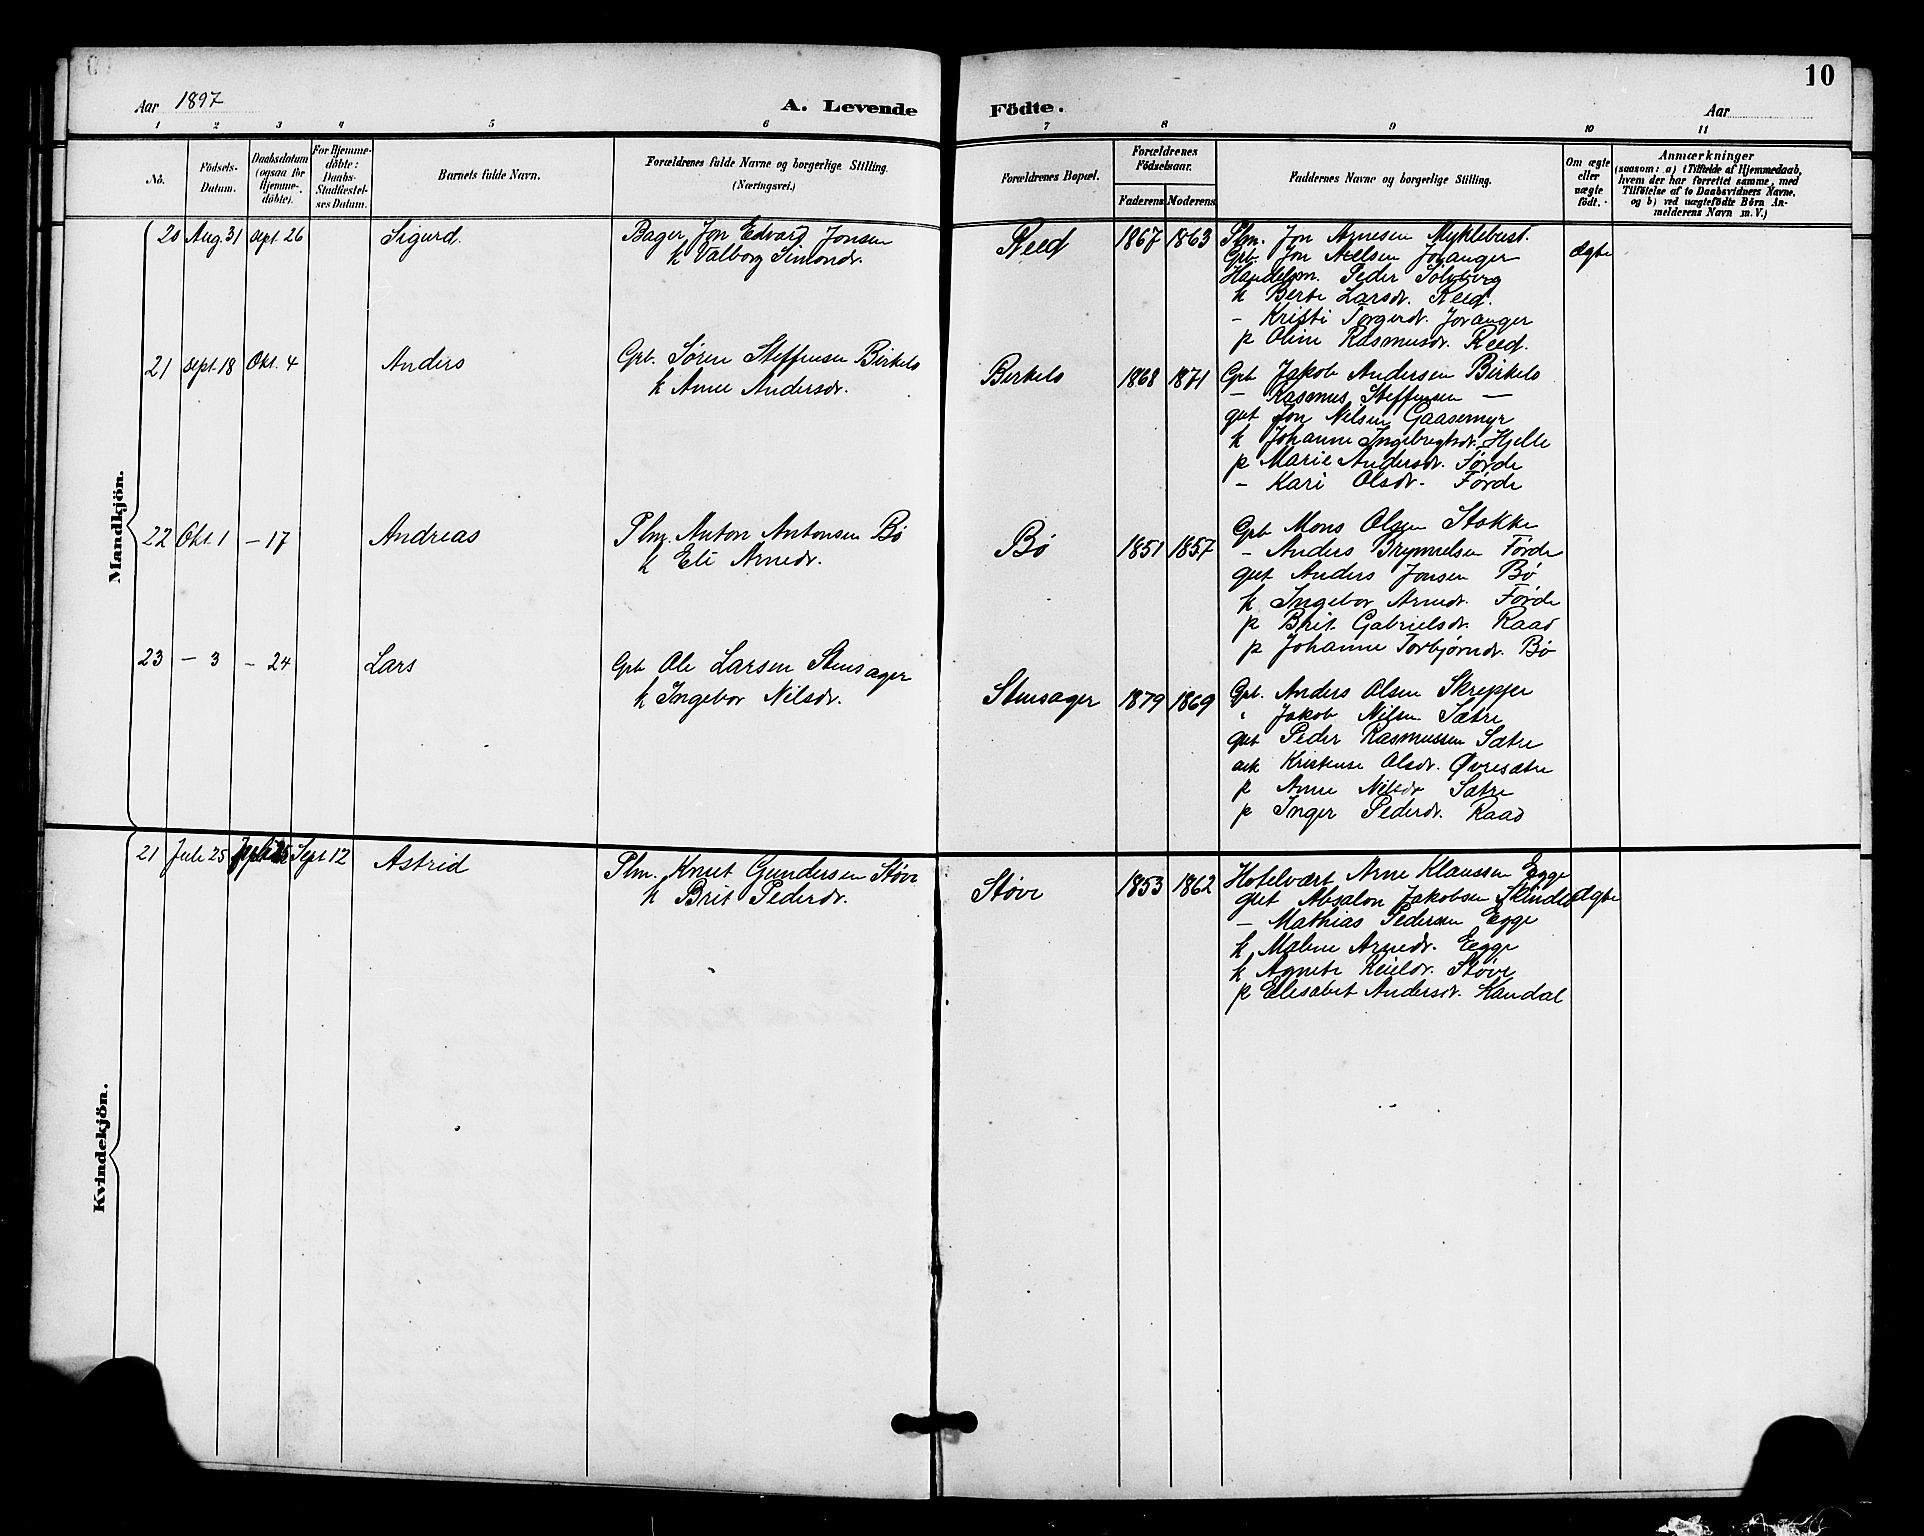 10
Aar 1897
A. Levende
Födte.
Aar
1 2 3 4 5 6 7 8 9 10 11
No.
Födsels-
Datum.
Daabsdatum
(ogsaa for
Hjemme-
döbte).
For Hjemme-
döbte:
Daabs-
Stadfæstel-
ses Datum.
Barnets fulde Navn.
Forældrenes fulde Navne og borgerlige Stilling.
(Næringsvei.)
Forældrenes Bopæl.
Forældrenes
Födselsaar.
Faderens
Moderens
Faddernes Navne og borgerlige Stilling.
Om ægte
eller
uægte
født.
Anmærkninger
(saasom: a) i Tilfælde af Hjemmedaab,
hvem der har forrettet samme, med
Tilföielse af to Daabsvidners Navne,
og b) ved uægtefødte Börn An-
melderens Navn m. V.)
Mandkjön.
20 Aug. 31 Sept. 26 Sigurd. Bager Jon Edvard Jonsen
k Valborg Simonsdr.
Reed 1867 1863 Plm. Jon Arnesen Myklebust.
Ægte
Grb. Jon Nielsen Joranger
Handelsm. Peder Sölvberg
k Berte Larsdr. Reed.
- Kristi Torgerdr. Joranger
p Oline Rasmusdr. Reed.
21 Sept. 18 Okt. 4 Anders Grb. Søren Steffensen Birkelo
k Anne Andersdr.
Birkelo 1868 1871 Grb Jakob Andersen Birkelo
- Rasmus Steffensen -
gut Jon Nilsen Gaasemyr
k Johanne Ingebregtsdr. Hjelle
p Marie Andersdr. Førde
- Kari Olsdr. Førde
22 Okt. 1 - 17 Andreas Plm. Anton Antonsen Bø
k Eli Arnedr.
Bø 1851 1857 Grb Mons Olsen Stokke
- Anders Brynnelsen Førde
gut Anders Jonsen Bø
k Ingebor Arnedr. Førde
p Brit Gabrielsdr. Raad
p Johanne Torbjørndr. Bø
23 - 3 - 24 Lars Grb Ole Larsen Stensager
k Ingebor Nilsdr.
Stensager 1879 1869 Grb. Anders Olsen Skrepjer
" Jakob Nilsen Sætre
gut Peder Rasmussen Sætre
Kristense Olsdr. Øvresætre
p Anne Nilsdr Sætre
p Inger Pederdr. Raad
Kvindekjön.
21 Juli 25 Sept 12 Astrid Plm. Knut Gundersen Støve
k Brit Pederdr.
Støve 1853 1862 Hotelvært Arne Klaussen Egge
gut Absalon Jakobsen Skindlo Ægte
- Mathias Pedersen Egge
k Malene Arnedr. Egge
k Agnete Reieldr. Støve
p Elisabet Andersdr. Kandal